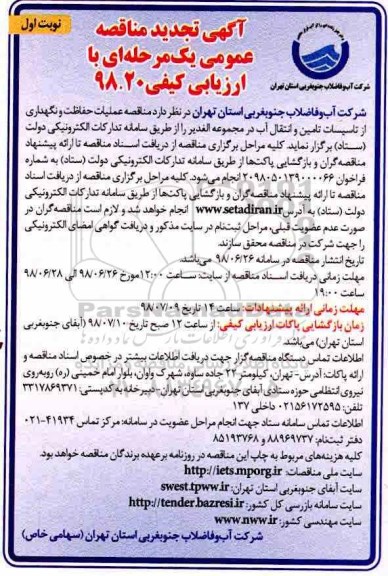 نوبت اول
آگهی تجدید مناقصه
عمومی یک‌مرحله‌ای با
ارزیابی کیفی ۹۸.۲۰
شرکت آب و فاضلاب جنوبغربی استان تهران
شرکت آب و فاضلاب جنوبغربی استان تهران در نظر دارد مناقصه عملیات حفاظت و نگهداری
از تاسیسات تامین و انتقال آب در مجموعه الغدیر را از طریق سامانه تدارکات الکترونیکی دولت
(ستاد) برگزار نماید. کلیه مراحل برگزاری مناقصه از دریافت اسناد مناقصه تا ارائه پیشنهاد
مناقصه‌گران و بازگشایی پاکت‌ها از طریق سامانه تدارکات الکترونیکی دولت (ستاد) به شماره
فراخوان ۲۰۹۸۰۵۰۱۳۹۰۰۰۰۶۶ انجام می‌شود. کلیه مراحل برگزاری مناقصه از دریافت اسناد
مناقصه تا ارائه پیشنهاد مناقصه‌گران و بازگشایی پاکت‌ها از طریق سامانه تدارکات الکترونیکی
دولت (ستاد) به آدرس www.setadiran.ir انجام خواهد شد و لازم است مناقصه‌گران در
صورت عدم عضویت قبلی، مراحل ثبت‌نام در سایت مذکور و دریافت گواهی امضای الکترونیکی
را جهت شرکت در مناقصه محقق سازند.
تاریخ انتشار مناقصه در سامانه ۹۸/۰۶/۲۶ می‌باشد.
مهلت زمانی دریافت اسناد مناقصه از سایت: ساعت ۱۲:۰۰ مورخ ۹۸/۰۶/۲۶ الی ۹۸/۰۶/۲۸
ساعت ۱۹:۰۰
مهلت زمانی ارائه پیشنهادات: ساعت ۱۴ تاریخ ۹۸/۰۷/۰۹
زمان بازگشایی پاکات ارزیابی کیفی: از ساعت ۱۲ صبح تاریخ ۹۸/۰۷/۱۰ (آبفای جنوبغربی
استان تهران) می‌باشد.
اطلاعات تماس دستگاه مناقصه‌گزار جهت دریافت اطلاعات بیشتر در خصوص اسناد مناقصه و
ارائه پاکات: آدرس - تهران، کیلومتر ۲۲ جاده ساوه، شهرک واوان، بلوار امام خمینی (ره) روبه‌روی
نیروی انتظامی حوزه ستادی آبفای جنوبغربی استان تهران، دبیرخانه کدپستی: ۳۳۱۷۸۶۹۳۷۱
تلفن: ۰۲۱۵۶۱۷۲۵۹۵ داخلی ۱۳۷
اطلاعات تماس سامانه ستاد جهت انجام مراحل عضویت در سامانه: مرکز تماس ۴۱۹۳۴-۰۲۱
دفتر ثبت‌نام: ۸۸۹۶۹۷۳۷ و ۸۵۱۹۳۷۶۸
کلیه هزینه‌های مربوط به چاپ این مناقصه در روزنامه برعهده برندگان مناقصه خواهد بود.
سایت ملی مناقصات: http://iets.mporg.ir
سایت آبفای جنوبغربی استان تهران: swest.tpww.ir
سایت سامانه بازرسی کل کشور: http://tender.bazresi.ir
سایت مهندسی کشور: www.nww.ir
شرکت آب و فاضلاب جنوبغربی استان تهران (سهامی خاص)